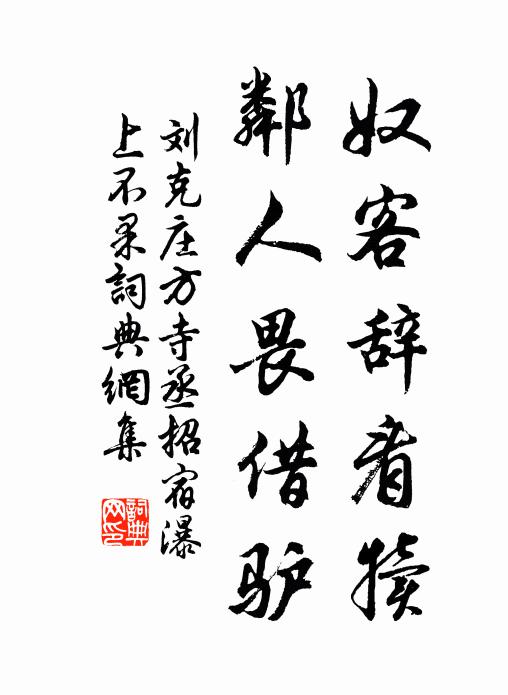 奴客辞看犊
鄰人畏借驴
刘克庄方寺丞招宿瀑
上不果詞典網集
詞典
网印